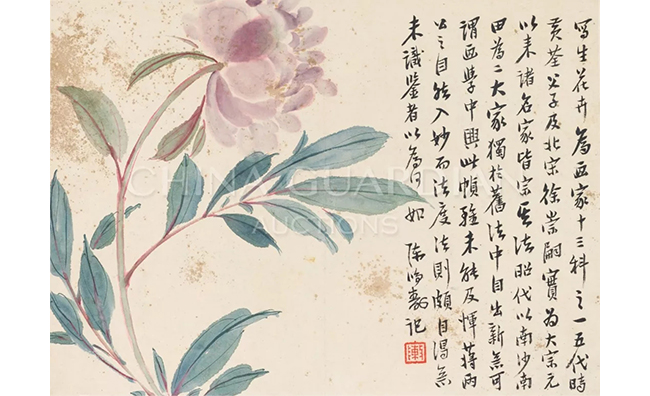 寫生花卉為画家十三科之一五代時
黃荃父子及北宋徐崇嗣實為大宗元
以来諸名家皆宗其法昭代以南沙南
田為二大家獨於舊法中自出新意可
謂画學中興此幀雖未能及惲蔣兩
公之自然入妙而法度法則頗自
未識鑒者以為何如 陳鴻壽記
CHINA GUARDIAN
AUCTIONS